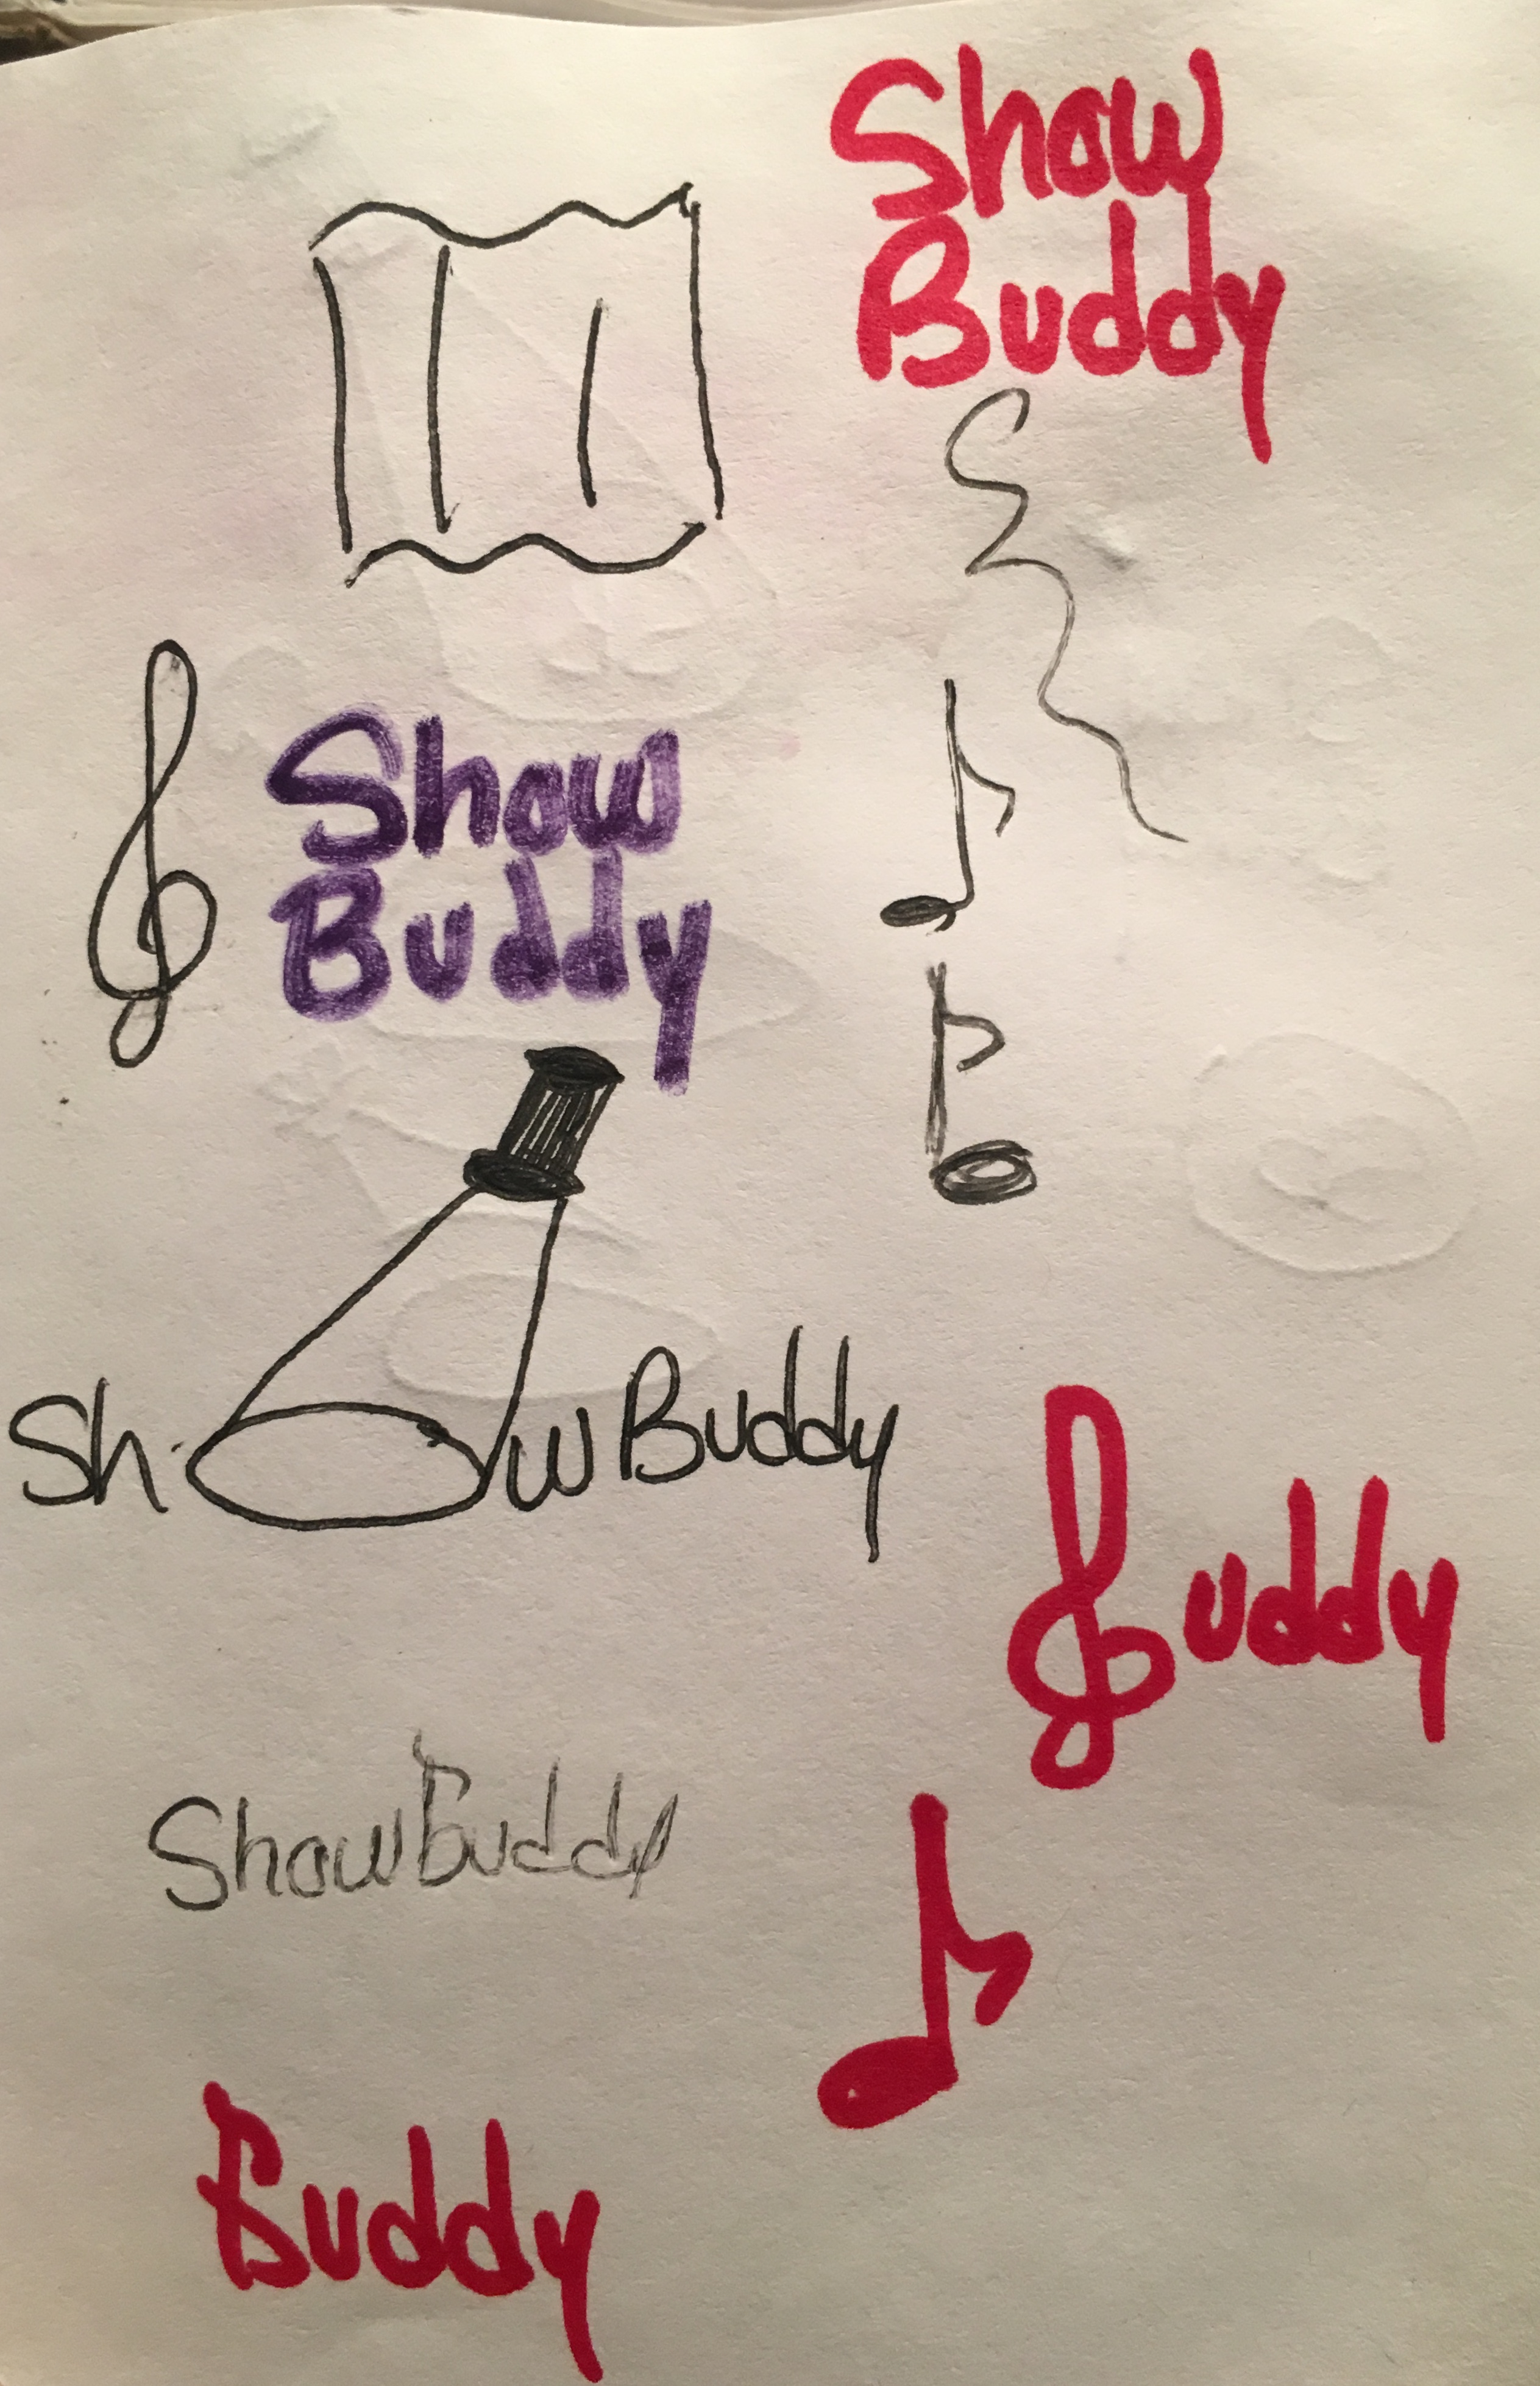 Show
Buddy
Show
Buddy
Show Buddy
Buddy
ShowBuddy
Buddy